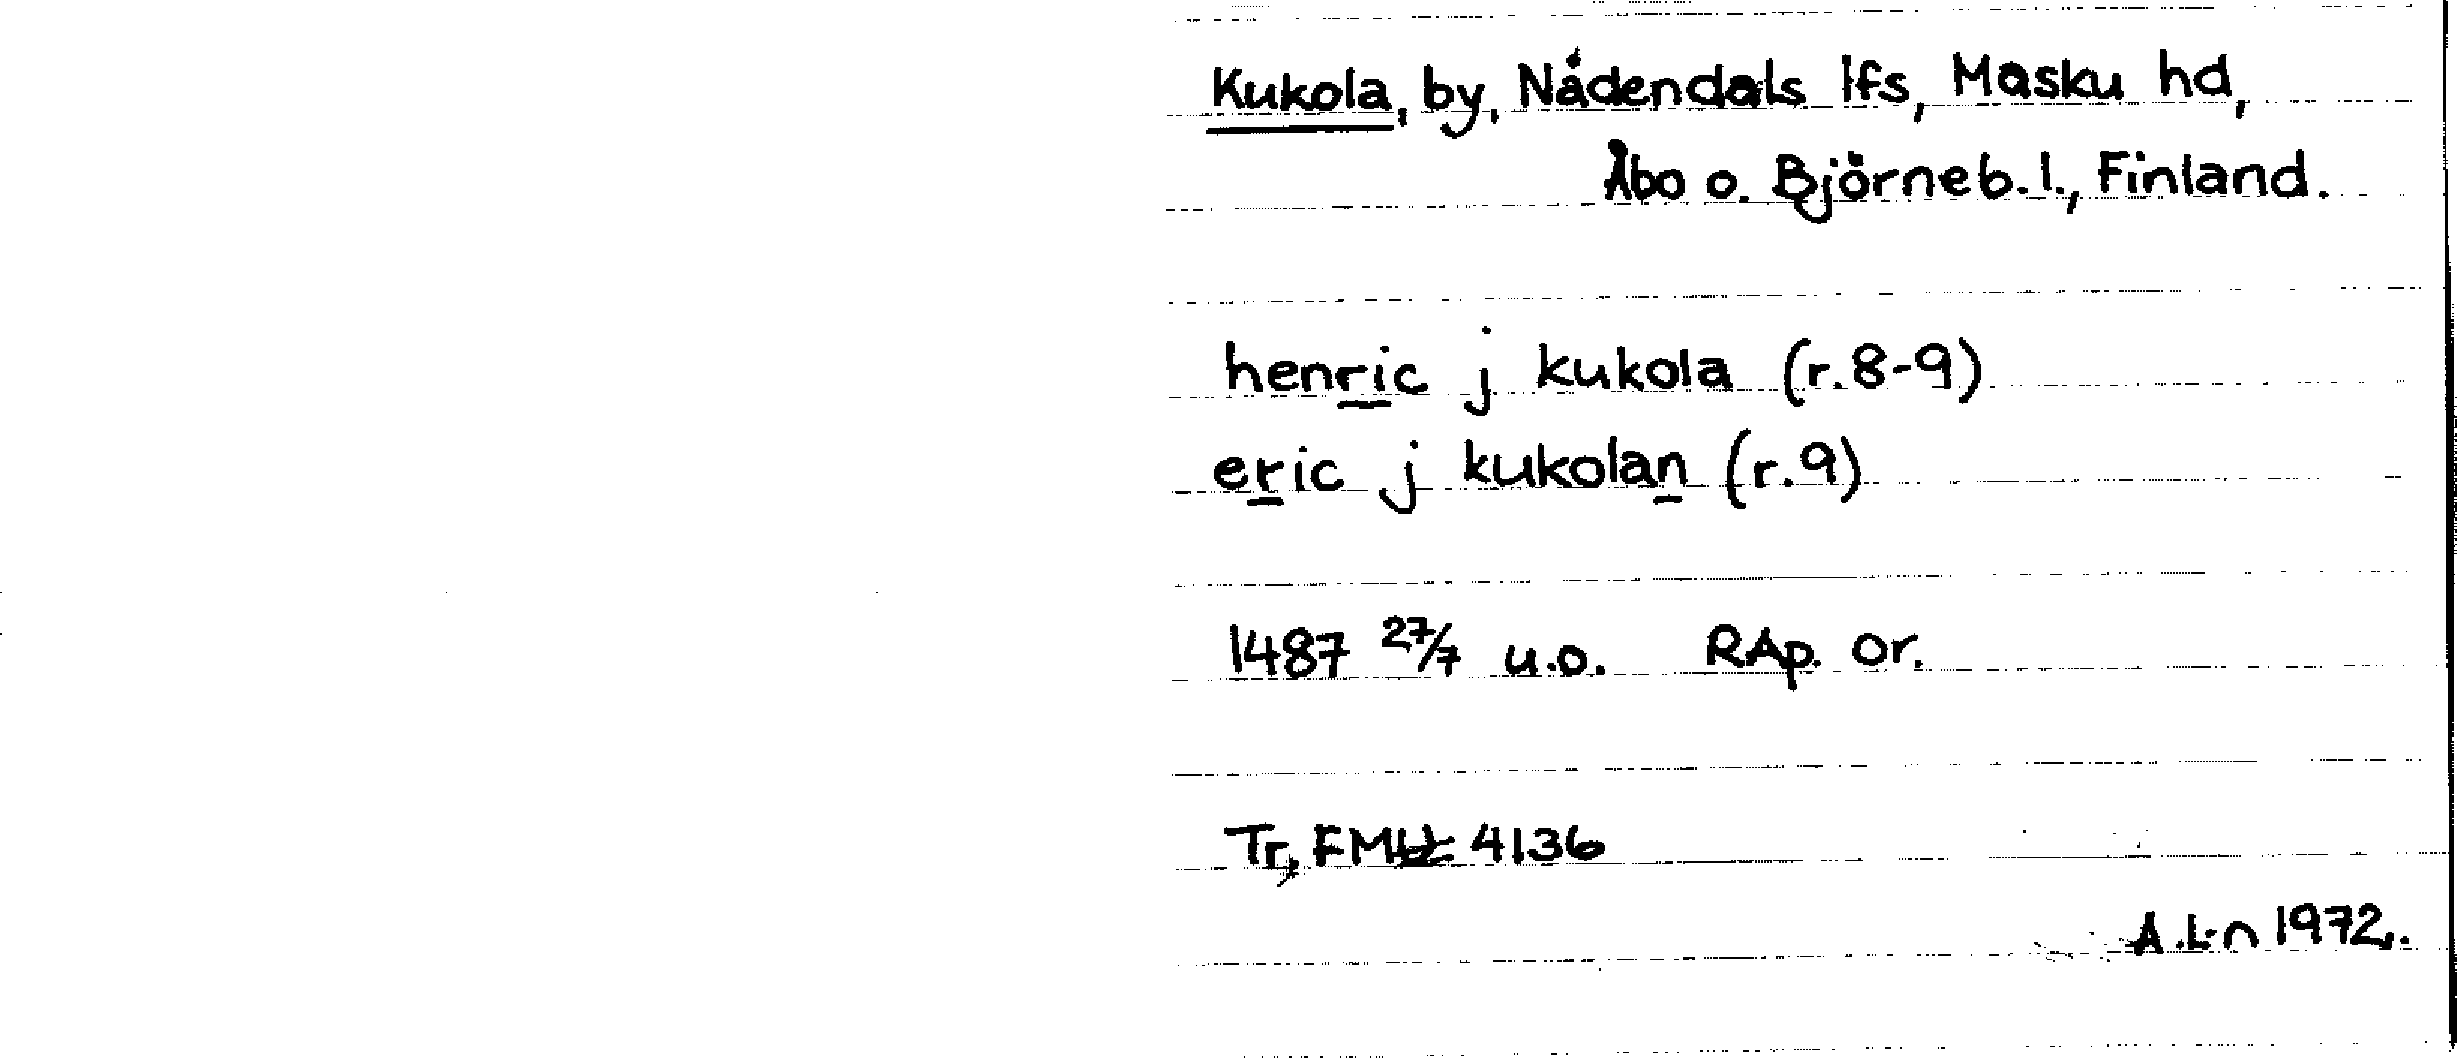 Kukola, by, Nådendals lfs, Masku hd,
Åbo o. Björneb. l., Finland.
henric j kukola (r.8-9)
eric j kukolan (r.9)
1487 27/7 u.o. RAp. or.
Tr, FMU 4136
A.L-n 1972.